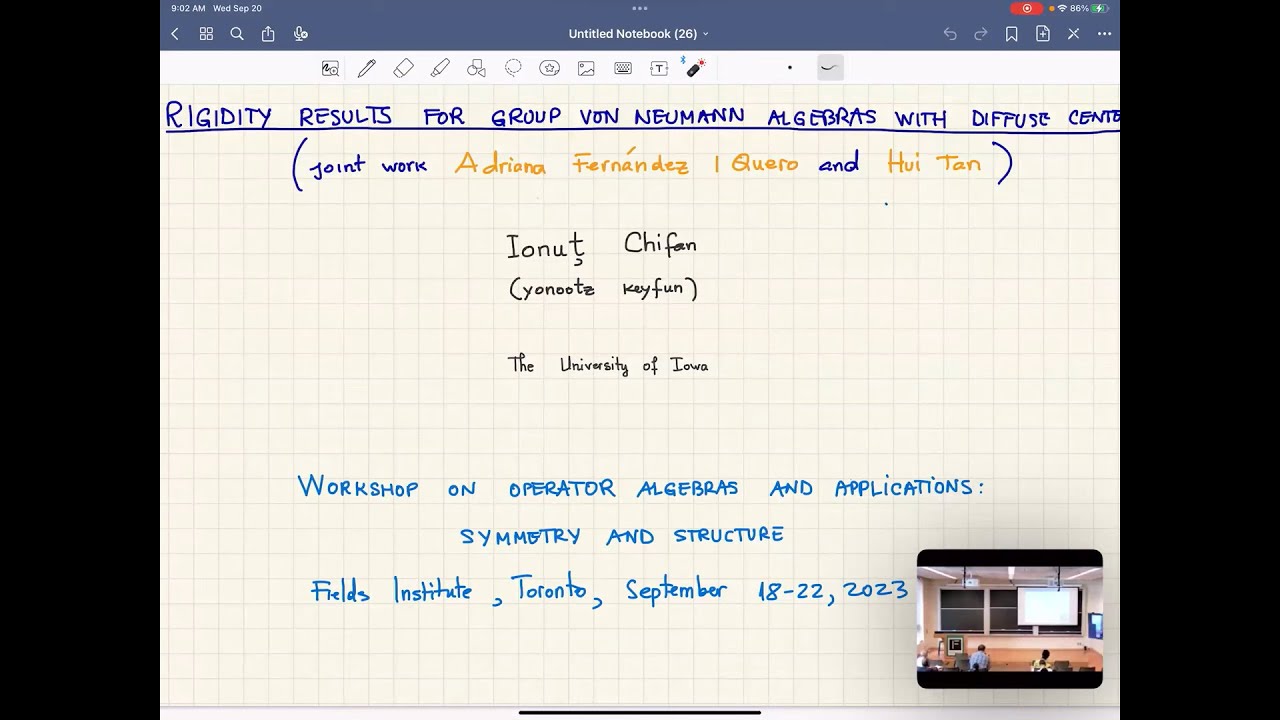 9:02 AM Wed Sep 20
86%
Untitled Notebook (26)
RIGIDITY RESULTS FOR GROUP VON NEUMANN ALGEBRAS WITH DIFFUSE CENTE
(joint work Adriana Fernández I Quero and Hui Tan)
Ionuț Chifan
(yonootz keyfun)
The University of Iowa
WORKSHOP ON OPERATOR ALGEBRAS AND APPLICATIONS:
SYMMETRY AND STRUCTURE
Fields Institute, Toronto, September 18-22, 2023